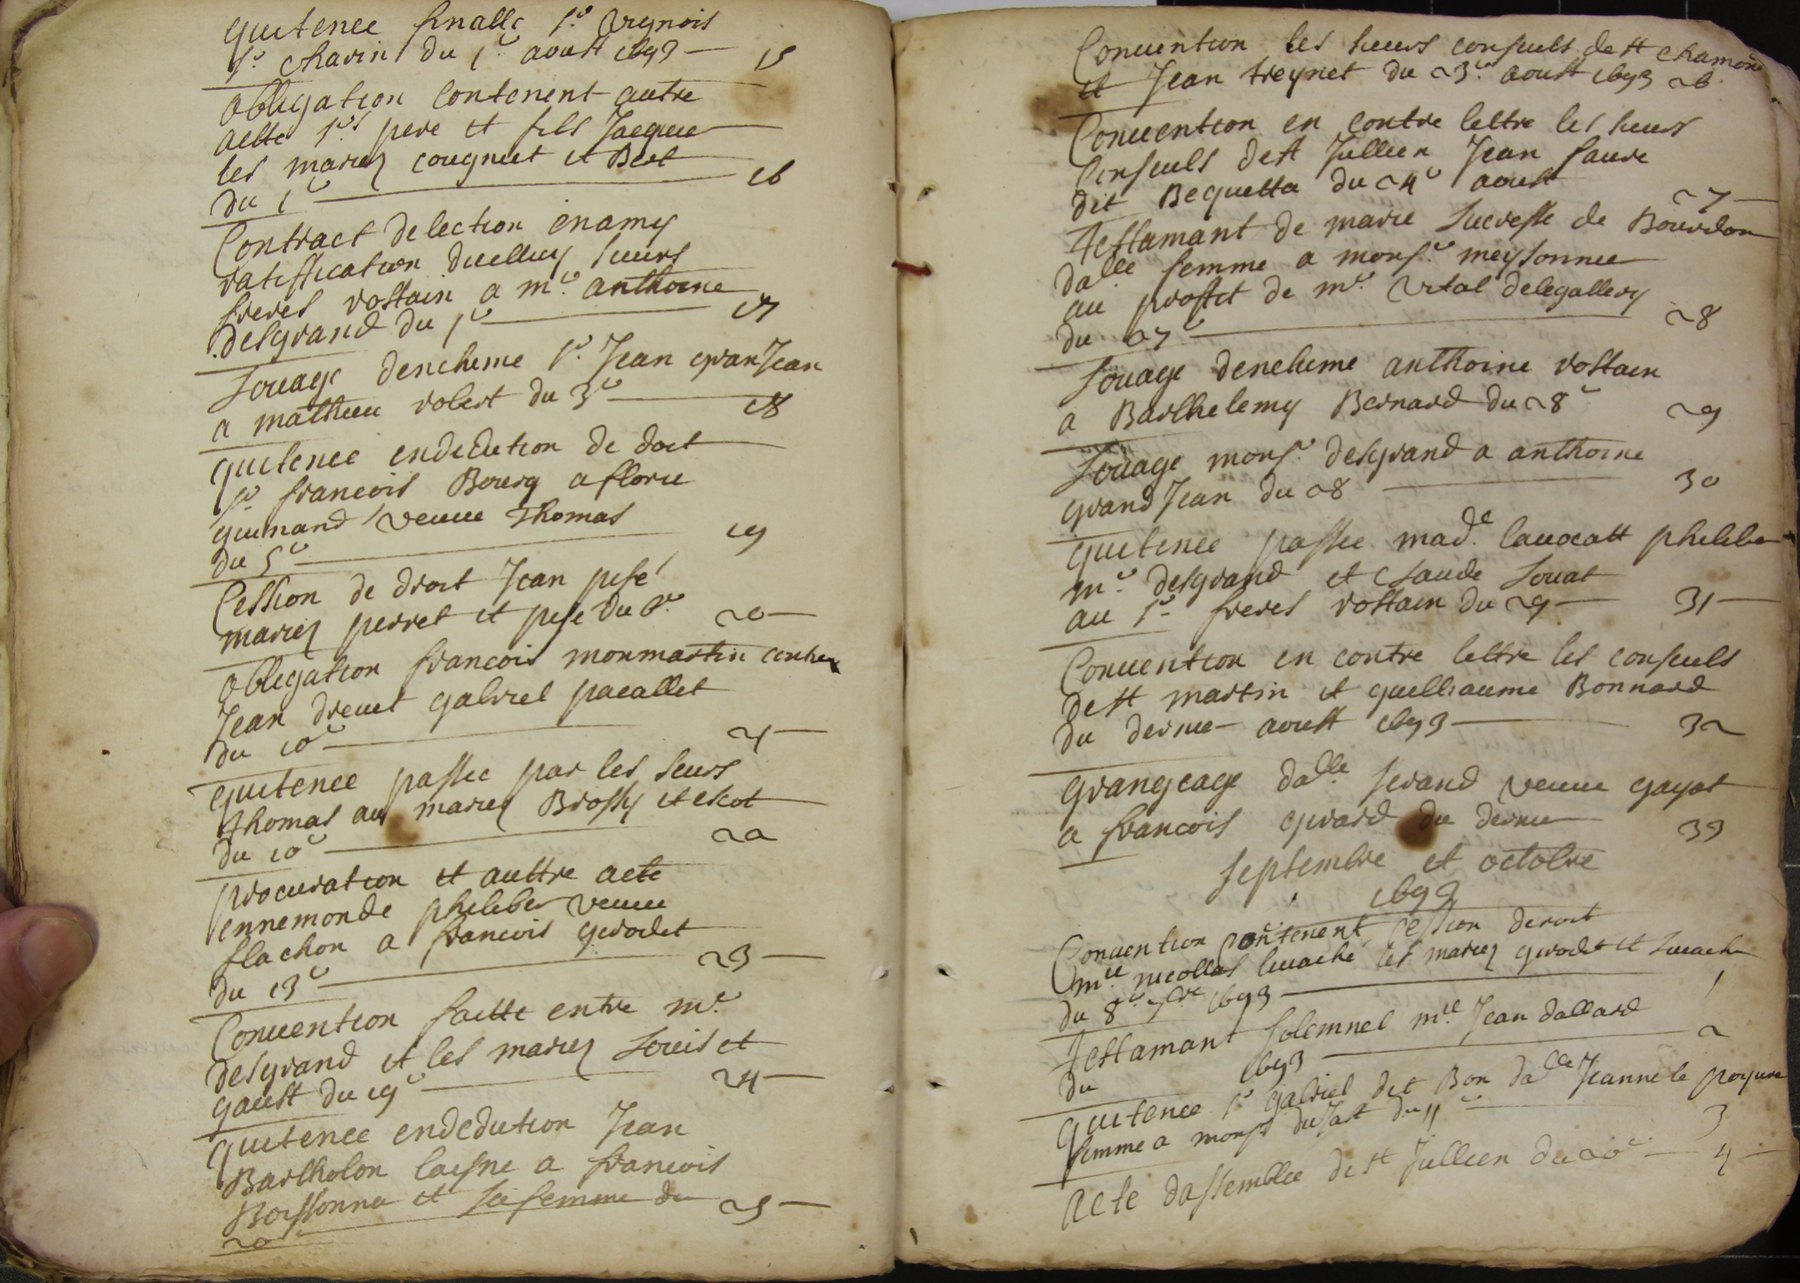 quitence finalle s.r vignois
s.r charin du 1.r aoust 1693 — 15
obligation contenent autre
acte s.rs pere et fils Jacque
les mariez cougniet et Bert
du 1.r — 16
Contract delection enamy
ratiffication duelluy sieurs
freres rostain a m.e anthoine
desgrand du 1.r — 17
Louage dencheme s.r Jean granJean
a mathieu robert du 3.e — 18
quitence endedution de doct
s.r francois Bourg a florie
guimand veuve Thomas
du 5.e — 19
Cession de droit Jean pisé
mariez perret et pise du 6.e 20 —
obligation francois monmartin contre
Jean drevet gabriel pacallet
du 10.e — 21 —
quitence passée par les sieurs
thomas aux mariez Brossy et escot
du 10.e — 22
procuration et auttre acte
ennemonde philiber veuve
flachon a francois girodet
du 13.e — 23 —
Convention faitte entre m.e
desgrand et les mariez Louis et
gault du 19.e — 24 —
quitence endedution Jean
Bartholon laisne a francois
Boissonna et sa femme du
20 — 25 —
Convention les sieurs consuls de st chamond
et Jean treynet du 23.e aoust 1693 26
Convention en contre lettre les sieurs
Consuls de st Jullien Jean faure
dit Bequetta du 24.e aoust 27 —
Testamant de marie Lucresse de Bourdon
dalle femme a mons.r meysonnie
au proffit de m.e vital delegallery
du 27.e — 28
Louage dencheme anthoine rostain
a Barthelemy Bernard du 28.e 29
Louage mons.r desgrand a anthoine
grandJean du 28 — 30
quitence passée mad.e lavocatt philiber
m.e desgrand et Claude Louat
au s.r freres rostain du 29 — 31 —
Convention en contre lettre les consuls
de st martin et guelliaume Bonnard
du dernie aoust 1693 — 32
grangeage dalle serand veuve gayot
a francois girard du dernie 33
septembre et octobre
1693
Convention contenent cession deroit
m.re nicollas livache les mariez girodet et Livache
du 8.e 7.bre 1693 — 1
Testamant solemnel m.re Jean dallard
du 1693 — 2
quitence s.r gabriel dit Bon dalle Jeanne le poyure
femme a mons.r duJast du 11.e — 3
acte dassemblee de st Jullien du 20.e — 4 —